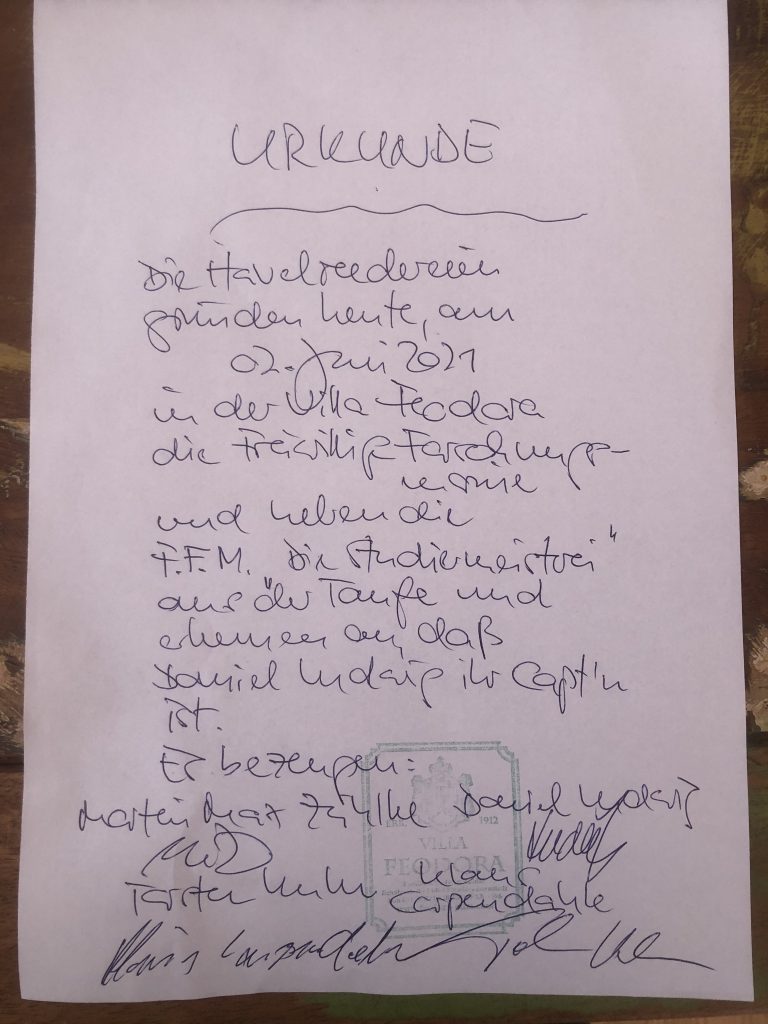 URKUNDE
Die Havelreedereien
gründen heute, am
02. Juni 2021
in der Villa Feodora
die Freiwillige Forschungs-
marine
und heben die
F.F.M. "Die Studiermeisterei"
aus der Taufe und
erkennen an, daß
Daniel Ludwig ihr Capt'n
ist.
Es bezeugen:
Martin Max Zühlke Daniel Ludwig
ERB. 1912
VILLA
FEODORA
Torsten Klaus
Carpendahle